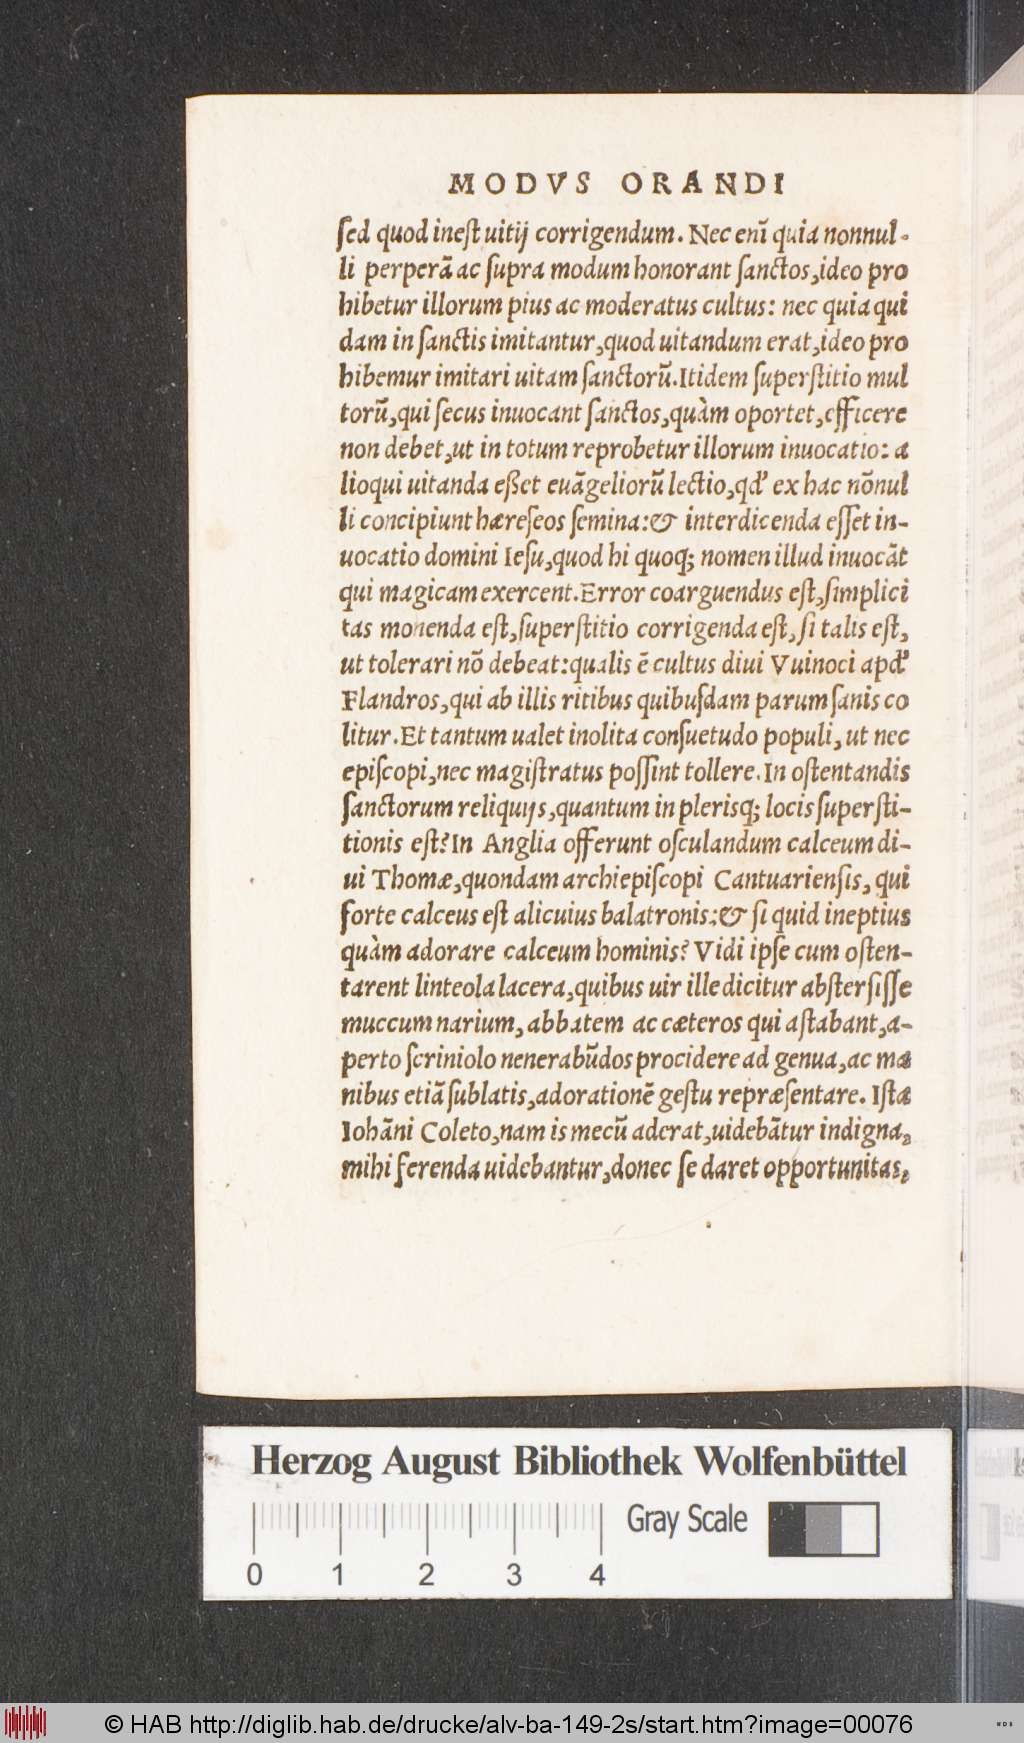 MODVS ORANDI
ſed quod ineſt uitij corrigendum. Nec enī quia nonnul-
li perperā ac ſupra modum honorant ſanctos, ideo pro
hibetur illorum pius ac moderatus cultus: nec quia qui
dam in ſanctis imitantur, quod uitandum erat, ideo pro
hibemur imitari uitam ſanctorū. Itidem ſuperſtitio mul
torū, qui ſecus inuocant ſanctos, quàm oportet, efficere
non debet, ut in totum reprobetur illorum inuocatio: a
lioqui uitanda eßet euāgeliorū lectio, qd' ex hac nōnul
li concipiunt hæreſeos ſemina: & interdicenda eſſet in-
uocatio domini Ieſu, quod hi quoq; nomen illud inuocāt
qui magicam exercent. Error coarguendus eſt, ſimplici
tas monenda eſt, ſuperſtitio corrigenda eſt, ſi talis eſt,
ut tolerari nō debeat: qualis ē cultus diui Vuinoci apd'
Flandros, qui ab illis ritibus quibuſdam parum ſanis co
litur. Et tantum ualet inolita conſuetudo populi, ut nec
epiſcopi, nec magiſtratus poſſint tollere. In oſtentandis
ſanctorum reliquijs, quantum in pleriſq; locis ſuperſti-
tionis eſt? In Anglia offerunt oſculandum calceum di-
ui Thomæ, quondam archiepiſcopi Cantuarienſis, qui
forte calceus eſt alicuius balatronis: & ſi quid ineptius
quàm adorare calceum hominis? Vidi ipſe cum oſten-
tarent linteola lacera, quibus uir ille dicitur abſterſiſſe
muccum narium, abbatem ac cæteros qui aſtabant, a-
perto ſcriniolo nenerabūdos procidere ad genua, ac ma
nibus etiā ſublatis, adorationē geſtu repræſentare. Iſta
Iohāni Coleto, nam is mecū aderat, uidebātur indigna,
mihi ferenda uidebantur, donec ſe daret opportunitas,
Herzog August Bibliothek Wolfenbüttel
Gray Scale
0 1 2 3 4
© HAB http://diglib.hab.de/drucke/alv-ba-149-2s/start.htm?image=00076